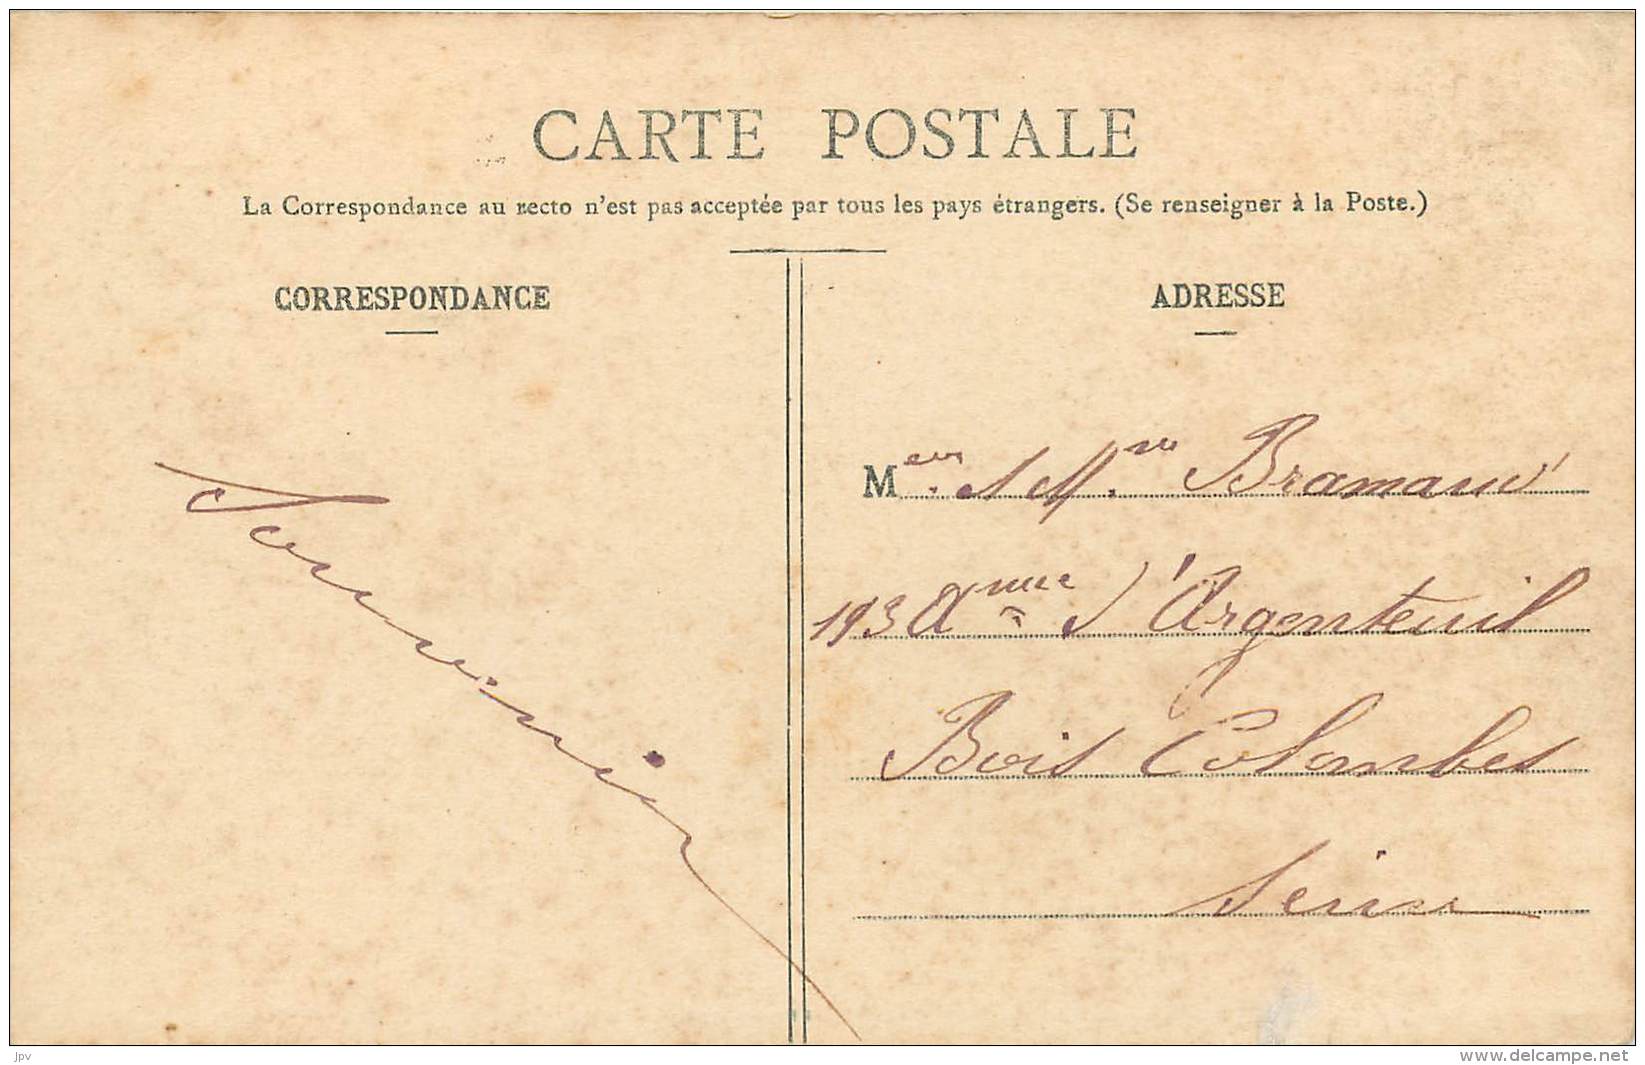 CARTE POSTALE
La Correspondance au recto n'est pas acceptée par tous les pays étrangers. (Se renseigner à la Poste.)
CORRESPONDANCE
ADRESSE
Souvenir
M
193 d'Argenteuil
Bois Colombes
Seine
jpv
www.delcampe.net